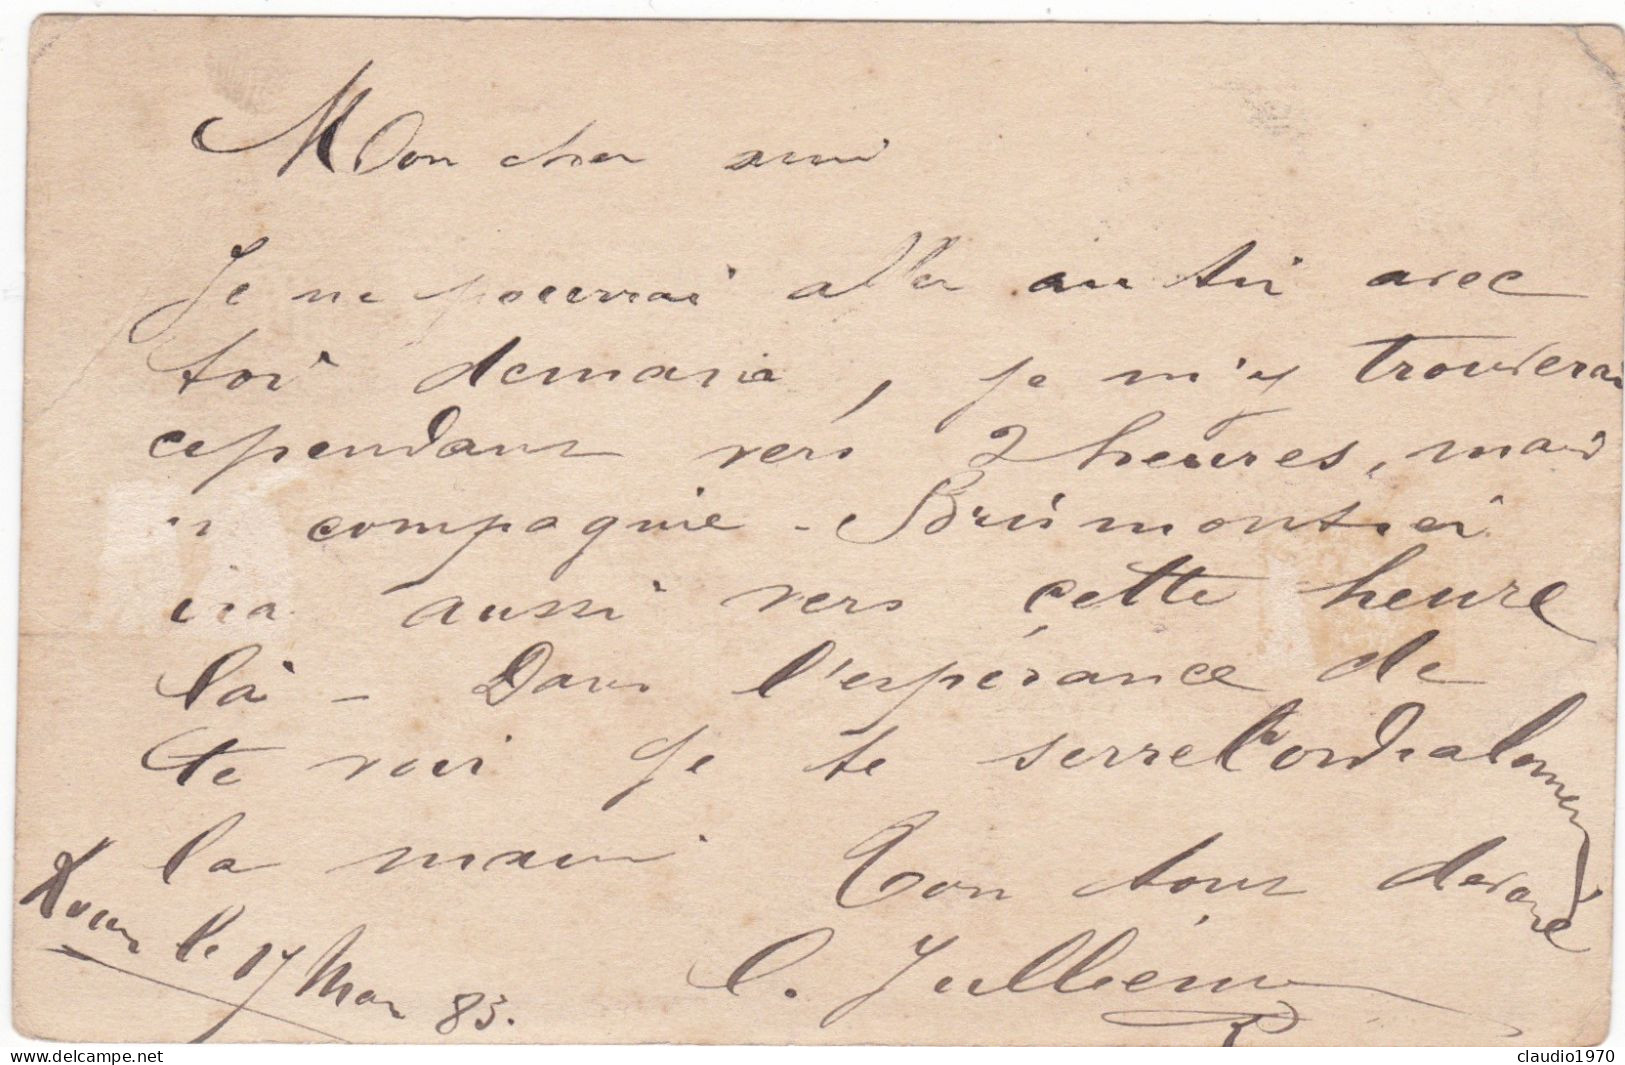 Mon cher ami
Je ne pourrai aller au tir avec
toi demain, je m'y trouverai
cependant vers 2 heures, mais
compagnie - Brumontier
ira aussi vers cette heure
là - Dans l'espérance de
te voir je te serre Cordialement
la main. Ton tout dévoué
le 17 Mar 83.
C. Jullienne
claudio1970